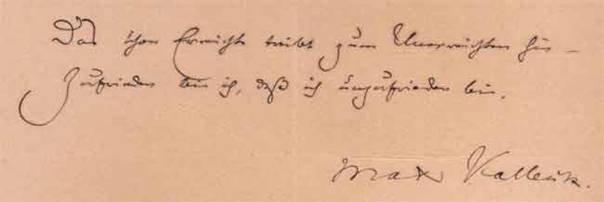 Das schon Erreichte treibt zum Unerreichten hin –
Zufrieden bin ich, daß ich unzufrieden bin.
Max Kalbeck.